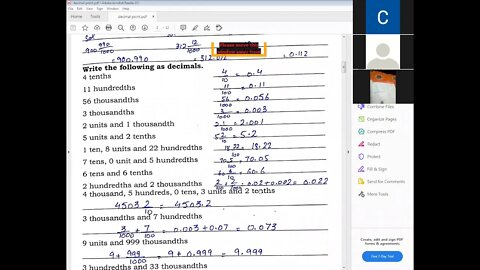 decimal point.pdf - Adobe Acrobat Reader DC
900 990/1000
312 12/1000
= 900.990
= 312.012
= 0.112
Please move this window away from
Write the following as decimals.
4 tenths 4/10 = 0.4
11 hundredths 11/100 = 0.11
56 thousandths 56/1000 = 0.056
3 thousandths 3/1000 = 0.003
2 units and 1 thousandth 2 1/1000 = 2.001
5 units and 2 tenths 5 2/10 = 5.2
1 ten, 8 units and 22 hundredths 18 22/100 = 18.22
7 tens, 0 unit and 5 hundredths 70 5/100 = 70.05
6 tens and 6 tenths 60 6/10 = 60.6
2 hundredths and 2 thousandths 2/100 + 2/1000 = 0.02+0.002 = 0.022
4 thousand, 5 hundreds, 0 tens, 3 units and 2 tenths
4503 2/10 = 4503.2
3 thousandths and 7 hundredths
3/1000 + 7/100 = 0.003 + 0.07 = 0.073
9 units and 999 thousandths
9 + 999/1000 = 9 + 0.999 = 9.999
3 hundredths and 33 thousandths
C
Combine Files
Organize Pages
Compress PDF
Redact
Protect
Fill & Sign
Send for Comments
More Tools
Create, edit and sign PDF
forms & agreements
Start Free Trial